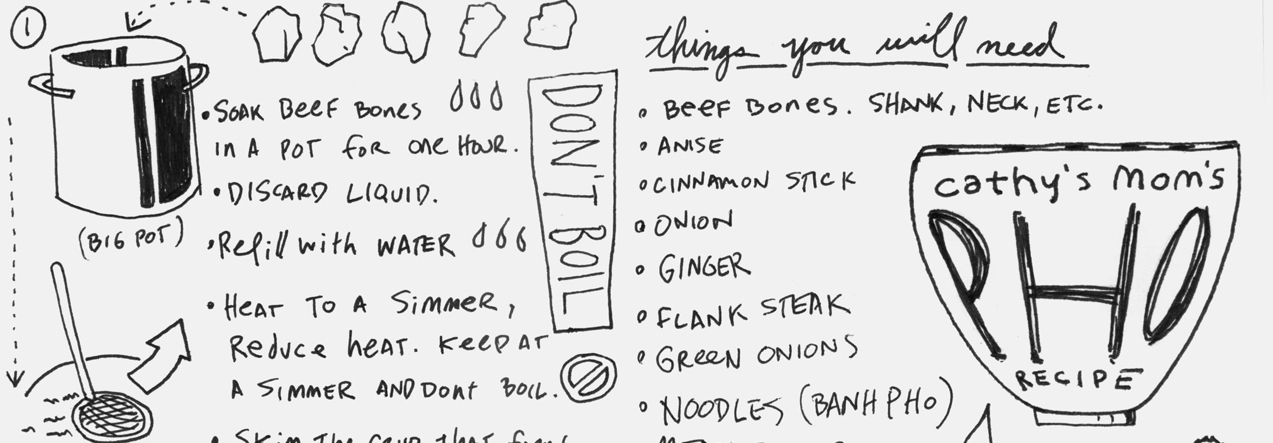 1
• SOAK BEEF BONES
IN A POT FOR ONE HOUR.
• DISCARD LIQUID.
(BIG POT)
• Refill with WATER
• HEAT TO A SIMMER,
Reduce heat. Keep AT
A SIMMER AND DONT BOIL.
• Skim The
DON'T BOIL
things you will need
• BEEF BONES. SHANK, NECK, ETC.
• ANISE
• CINNAMON STICK
• ONION
• GINGER
• FLANK STEAK
• GREEN ONIONS
• NOODLES (BANH PHO)
cathy's mom's
PHO
RECIPE